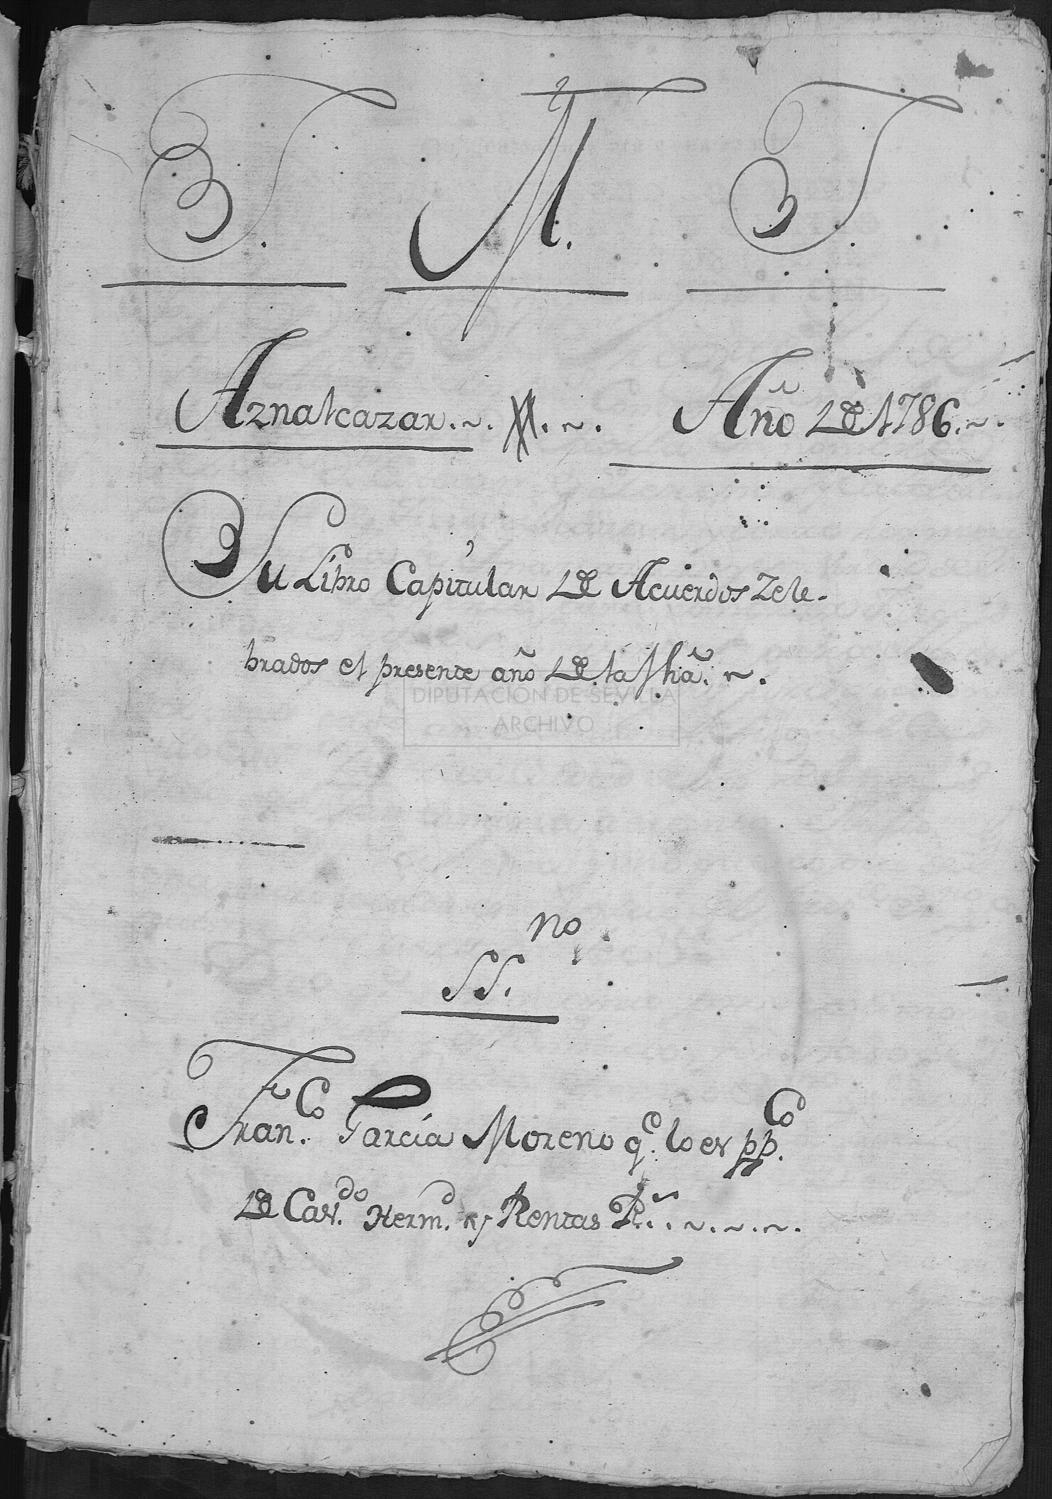 J. M. J.
Aznalcazar. ~. ~. Año de 1786. ~.
Su Libro Capitular de Acuerdos Zele-
brados el presente año de la fha. ~.
DIPUTACIÓN DE SEVILLA
ARCHIVO
SS.no
Fran.co Garcia Moreno q.e lo es pp.co
de Cav.do Herm.d y Rentas R.s. ~. ~. ~.